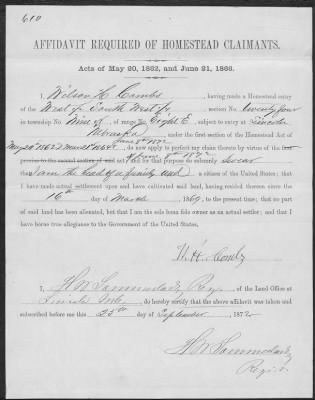 610
AFFIDAVIT REQUIRED OF HOMESTEAD CLAIMANTS.
Acts of May 20, 1862, and June 21, 1866.
I, Wilson H. Combs, having made a Homestead entry
of the West ½ South West ¼ section No. twenty four
in township No. Nine of range No. Eight E, subject to entry at Lincoln
Nebraska under the first section of the Homestead Act of
June 8th 1872
May 20th 1862, do now apply to perfect my claim thereby by virtue of the first
June 8th 1872
proviso to the second section of said act and for that purpose do solemnly swear
that I am the head of a family and a citizen of the United States; that I
have made actual settlement upon and have cultivated said land, having resided thereon since the
16th day of March 1869, to the present time; that no part
of said land has been alienated, but that I am the sole bona fide owner as an actual settler; and that I
have borne true allegiance to the Government of the United States.
W. H. Combs
I, Reg. of the Land Office at
Lincoln Neb, do hereby certify that the above affidavit was taken and
subscribed before me this 25th day of September, 1872
Register